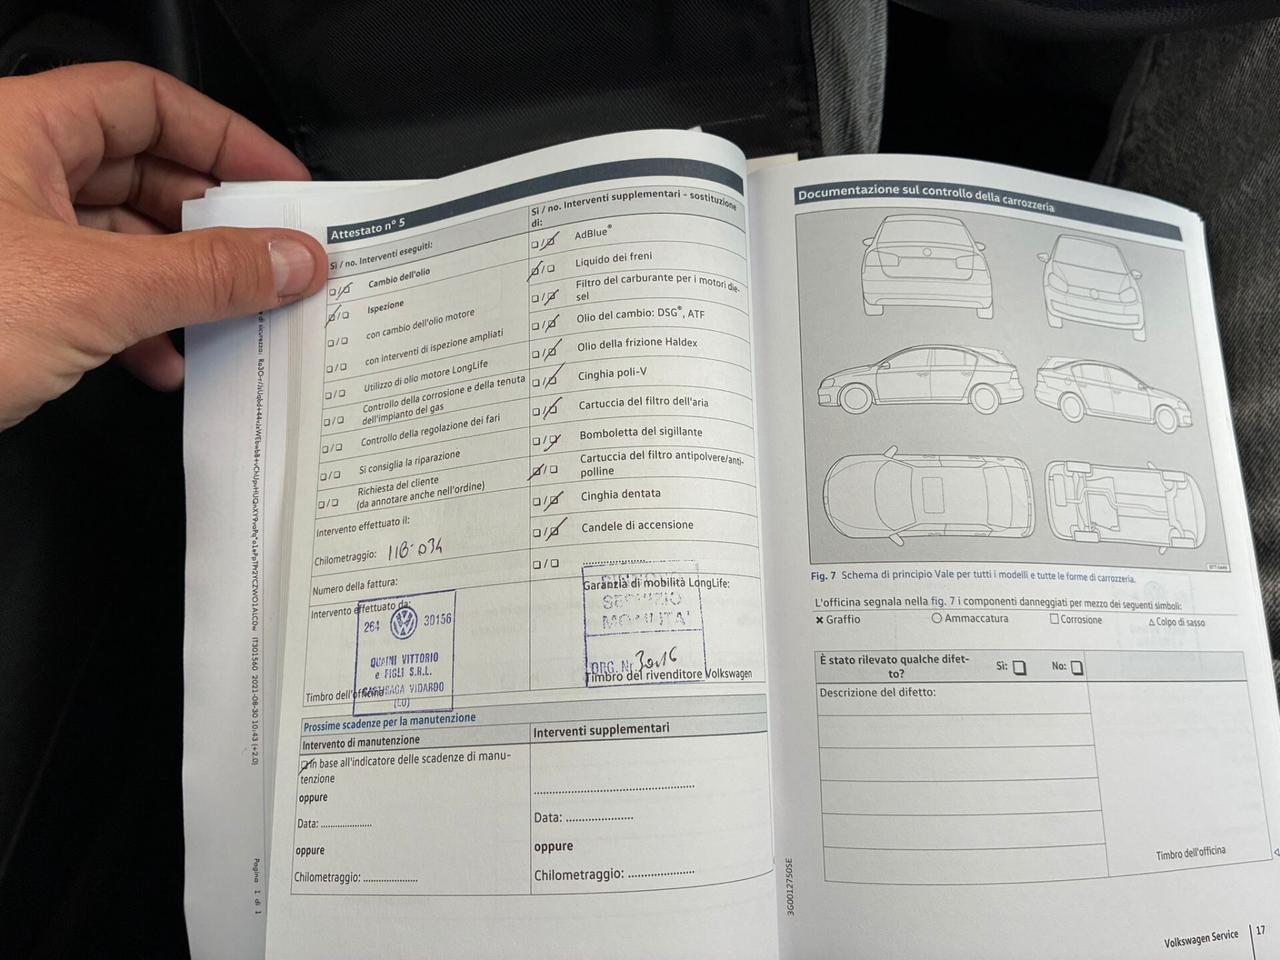 Attestato n° 5
Sì / no. Interventi eseguiti:
Cambio dell'olio
Ispezione
con cambio dell'olio motore
con interventi di ispezione ampliati
Utilizzo di olio motore LongLife
Controllo della corrosione e della tenuta
dell'impianto del gas
Controllo della regolazione dei fari
Si consiglia la riparazione
Richiesta del cliente
(da annotare anche nell'ordine)
Intervento effettuato il:
Chilometraggio: 118.034
Numero della fattura:
Intervento effettuato da:
264 30156
QUAINI VITTORIO
e FIGLI S.R.L.
CASTIRAGA VIDARDO
(LO)
Timbro dell'officina
Sì / no. Interventi supplementari – sostituzione
di:
AdBlue®
Liquido dei freni
Filtro del carburante per i motori die-
sel
Olio del cambio: DSG®, ATF
Olio della frizione Haldex
Cinghia poli-V
Cartuccia del filtro dell'aria
Bomboletta del sigillante
Cartuccia del filtro antipolvere/anti-
polline
Cinghia dentata
Candele di accensione
Garanzia di mobilità LongLife:
SERVIZIO
MOBILITA'
ORG. Nr. 30156
Timbro del rivenditore Volkswagen
Prossime scadenze per la manutenzione
Intervento di manutenzione
In base all'indicatore delle scadenze di manu-
tenzione
oppure
Data: ....................
oppure
Chilometraggio: ....................
Interventi supplementari
Data: ....................
oppure
Chilometraggio: ....................
IT301560 2021-08-30 10:43 (+2.0)
Pagina 1 di 1
Documentazione sul controllo della carrozzeria
Fig. 7 Schema di principio Vale per tutti i modelli e tutte le forme di carrozzeria.
L'officina segnala nella fig. 7 i componenti danneggiati per mezzo dei seguenti simboli:
× Graffio ○ Ammaccatura □ Corrosione △ Colpo di sasso
È stato rilevato qualche difet-
to?
Sì: No:
Descrizione del difetto:
Timbro dell'officina
3G0012750SE
Volkswagen Service 17